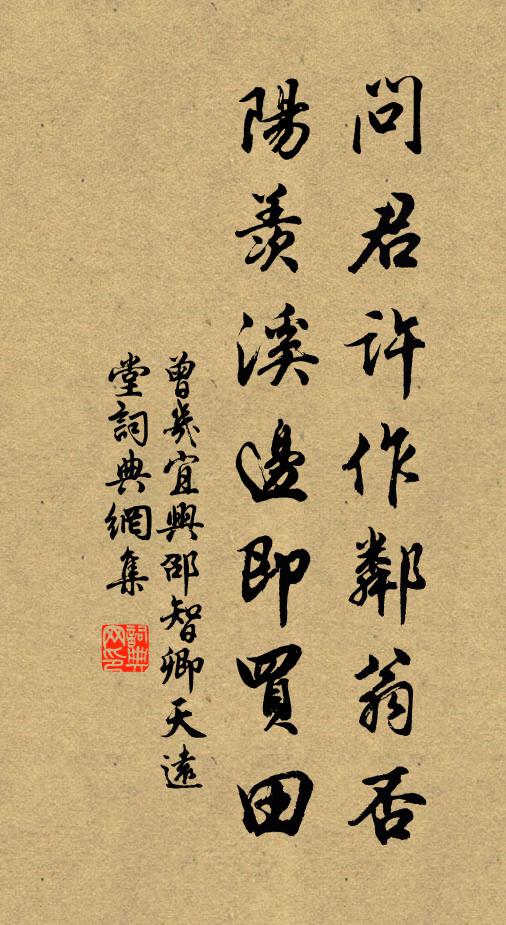 問君許作鄰翁否
陽羨溪邊即買田
曾幾宜興邵智卿天遠
堂詞典網集
詞典
网印